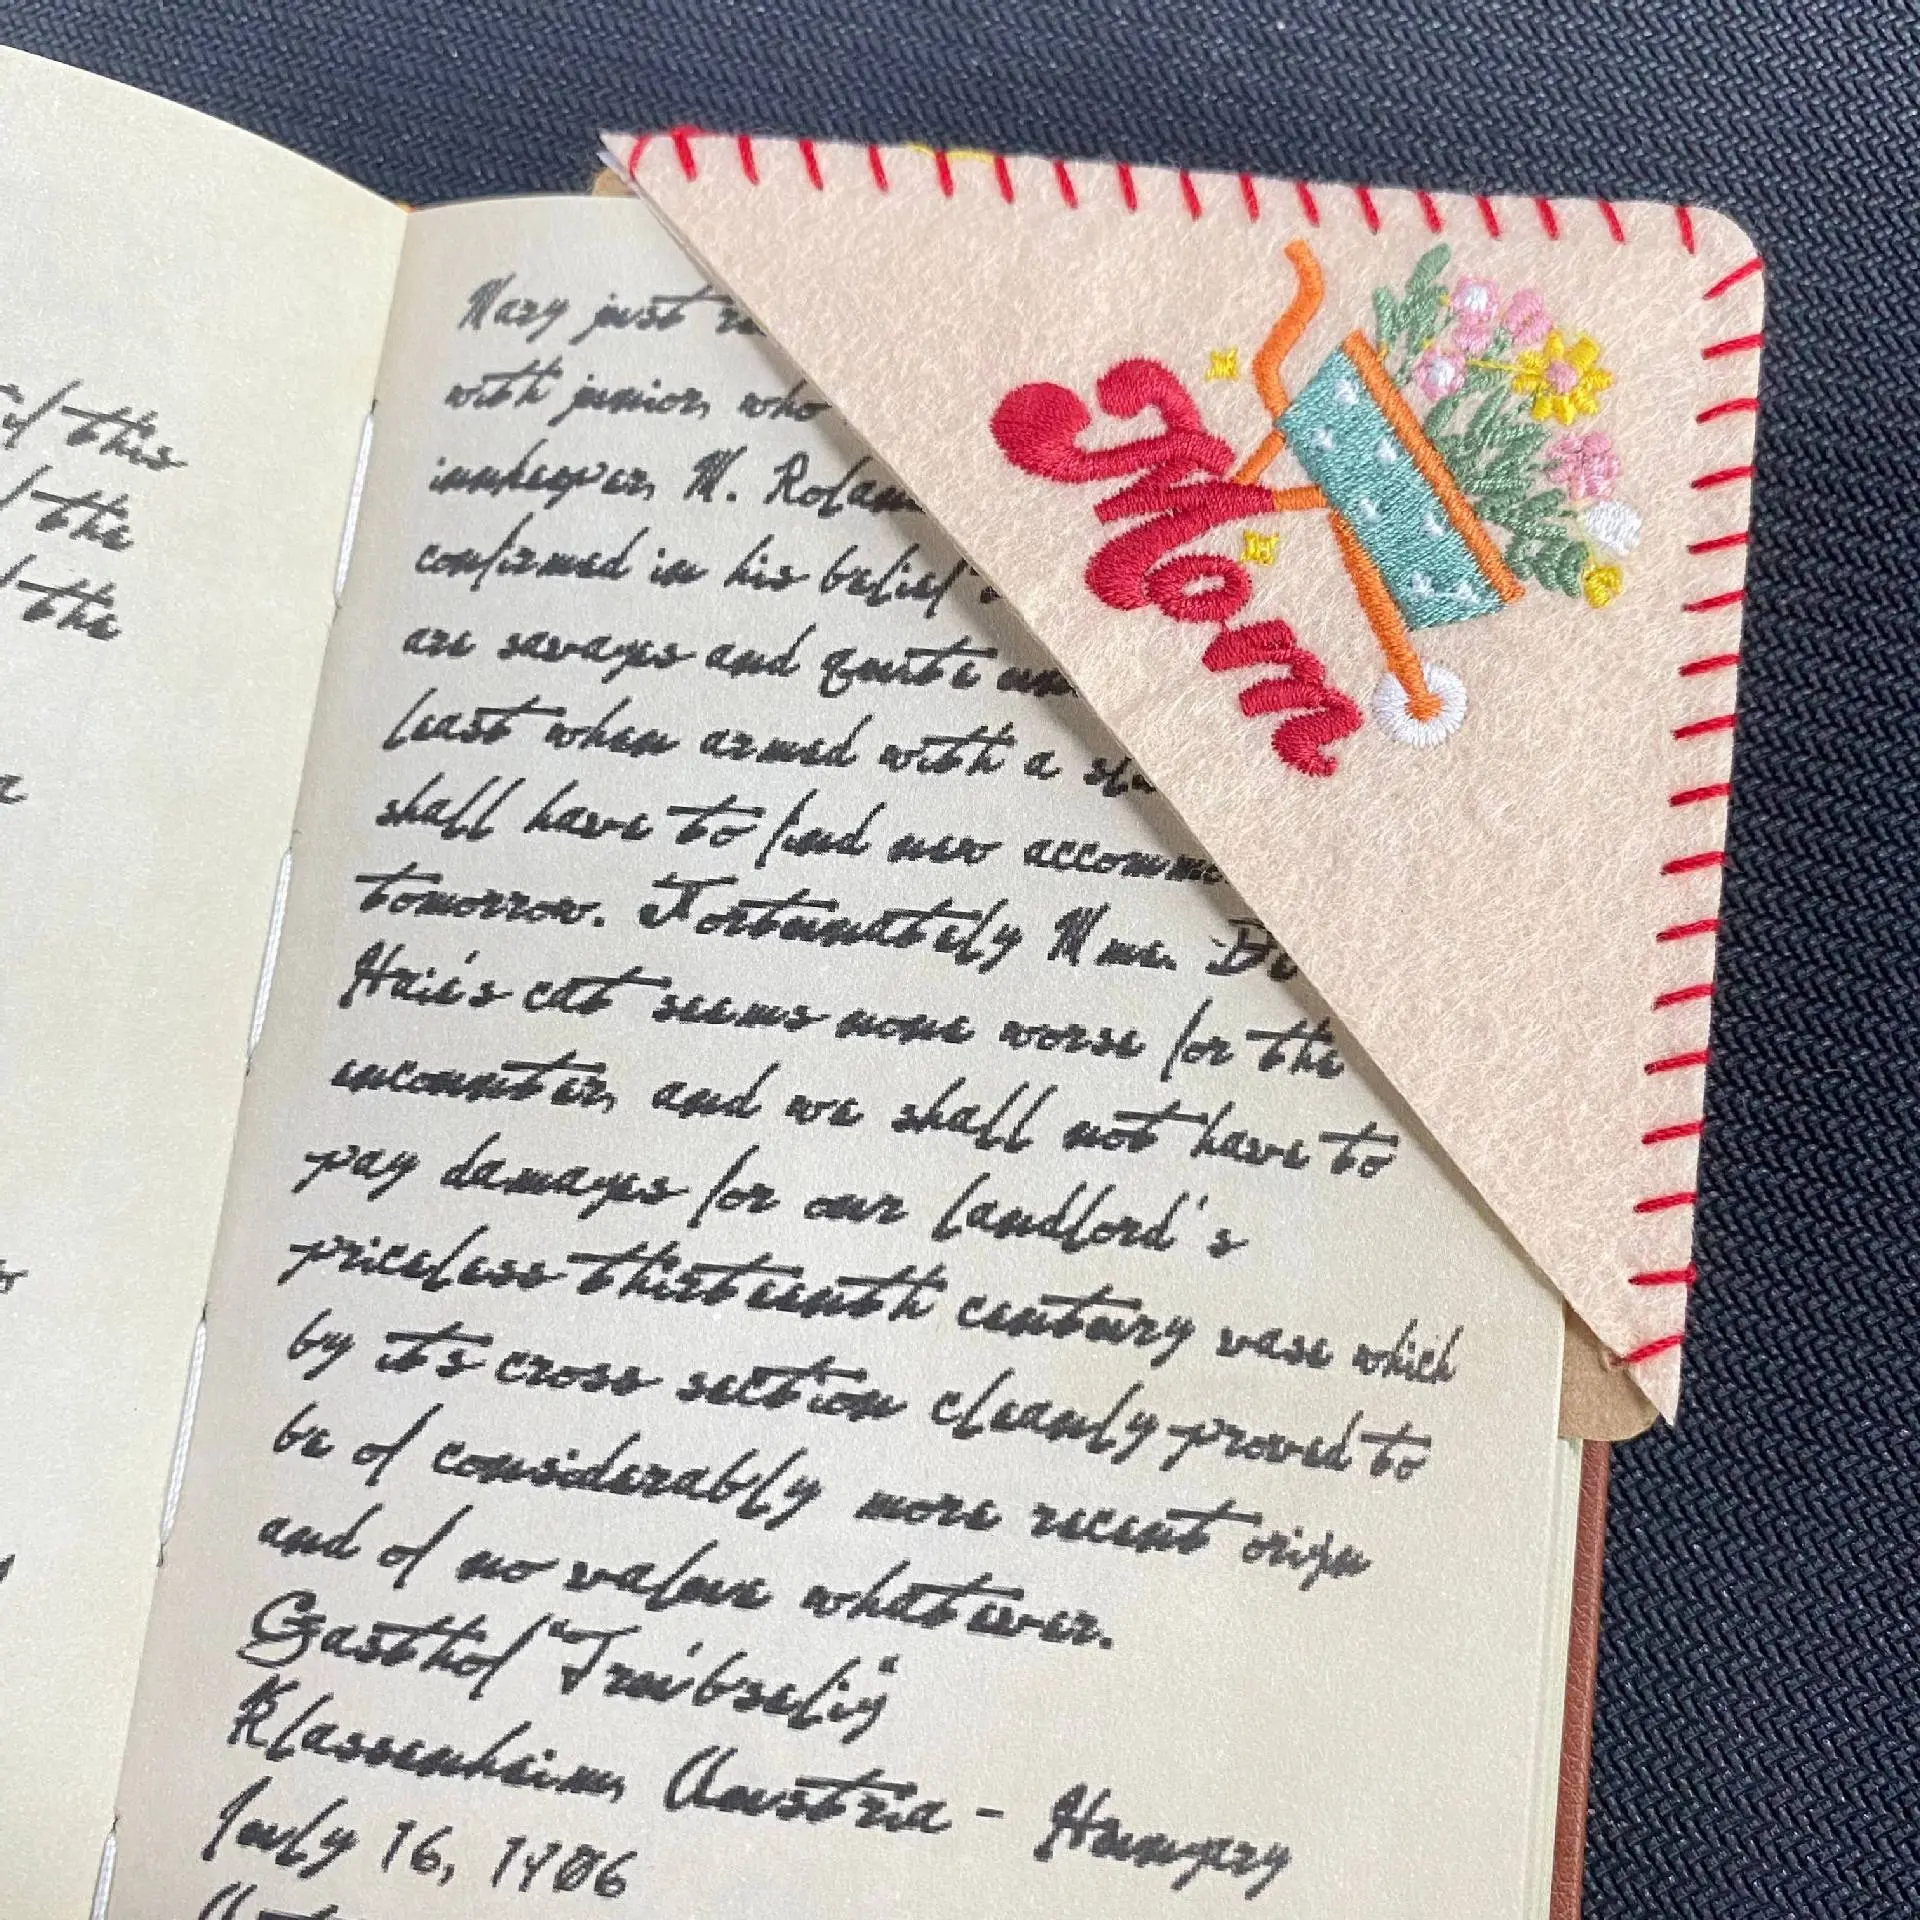 this
the
the
a
Mary just
with junior, who
innkeeper, M. Rolan
confirmed in his belief
are savages and quite un
least when armed with a sla
shall have to find new accomm
tomorrow. Fortunately Mme. De
Hrie's cat seems none worse for the
encounter, and we shall not have to
pay damages for our landlord's
priceless thirteenth century vase which
by its cross section cleanly proved to
be of considerably more recent origin
and of no value whatever.
Gasthof "Treibselig"
Klassenheim, Austria - Hungary
July 16, 1906
Mom